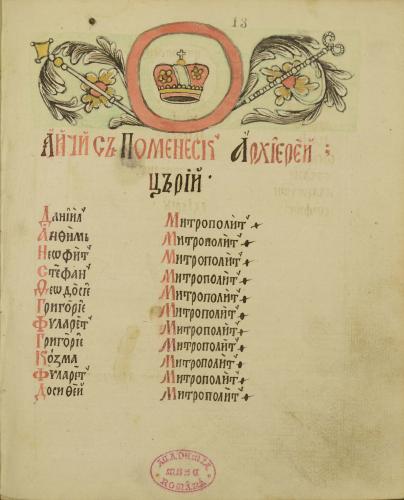 13
А҆ЙЧЙ СЪ ПОМЕНЕСК꙼ А҆РХЇЕРЕ́Й :
ЦЪРЇЙ꙼
Данїил꙼ Митрополи́т꙼
А҆нѳимъ Митрополи́т꙼
Неоѳит꙼ Митрополи́т꙼
Стефан꙼ Митрополи́т꙼
Ѳеѡдо́сїе Митрополи́т꙼
Григо́рїе Митрополи́т꙼
Фѵларе́т꙼ Митрополи́т꙼
Григо́рїе Митрополи́т꙼
Ко́зма Митрополи́т꙼
Фѵларе́т꙼ Митрополи́т꙼
Досиѳе́й Митрополи́т꙼
ROMÂNĂ